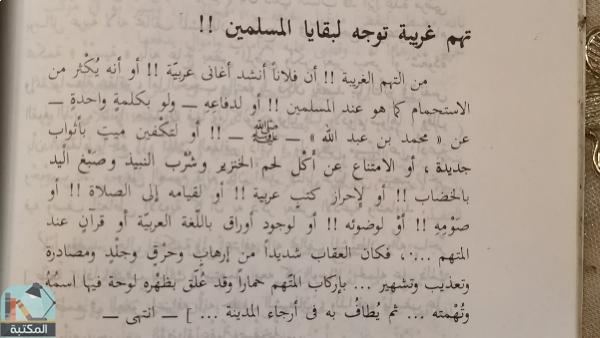 تهم غريبة توجه لبقايا المسلمين !!
من التهم الغريبة !! أن فلاناً أنشد أغانى عربيّة !! أو أنه يُكْثر من
الاستحمام كما هو عند المسلمين !! أو لدفاعِهِ ــ ولو بكلمةٍ واحدةٍ ــ
عن « محمد بن عبد الله » ــ ﷺ ــ !! أو لتكْفين ميتٍ بأثواب
جديدة ، أو الامتناع عن أكْل لحم الخنزير وشُرْب النبيذ وصَبْغ اليد
بالخضاب !! أو لإحراز كتبٍ عربية !! أو لقيامه إلى الصلاة !! أو
صَوْمِهِ !! أوْ لوضوئه !! أو لوجود أوراق باللّغة العربيّة أو قرآنٍ عند
المتهم ... ، فكان العقاب شديداً من إرهابٍ وحرْقٍ وجلْدٍ ومصادرة
وتعذيب وتشهير ... بإركاب المتّهم حماراً وقد عُلّق بظهْره لوحة فيها اسمُهُ
وتُهْمته ... ثم يُطافُ به فى أرجاء المدينة ... ] ــ انتهى ــ
المكتبة